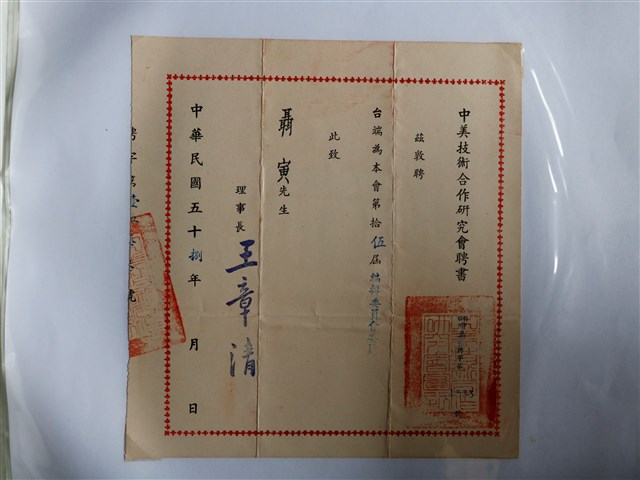 中美技術合作研究會聘書
茲敦聘
台端為本會第拾伍屆編輯委員
此致
聶寅先生
理事長 王章清
中華民國五十捌年 月 日